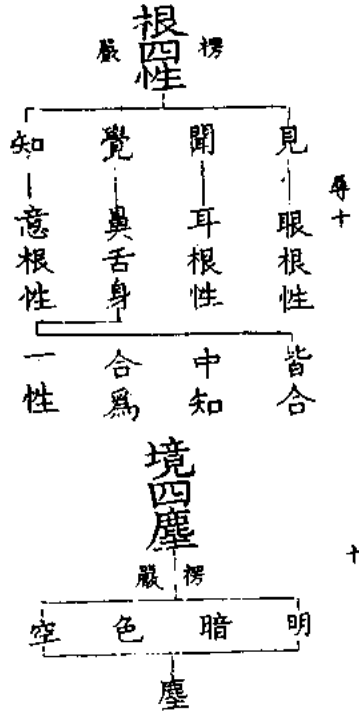 根四性
楞嚴
見
眼根性
聞
耳根性
覺
鼻舌身
知
意根性
皆合
中知
合爲
一性
境四塵
楞嚴
明
暗
色
空
塵
十